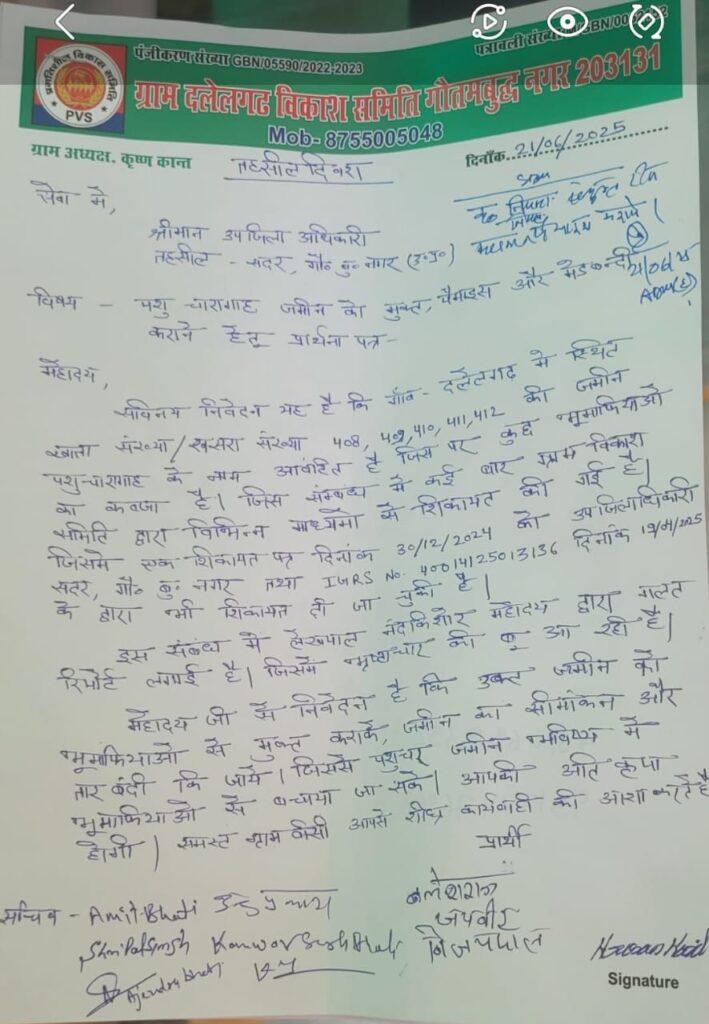 पंजीकरण संख्या GBN/05590/2022-2023
पत्रावली संख्या GBN/00
प्रगतिशील विकास समिति
PVS
ग्राम दलेलगढ विकाश समिति गौतमबुद्ध नगर 203131
Mob- 8755005048
ग्राम अध्यक्ष. कृष्ण कान्त
दिनाँक 21/06/2025
तहसील दिवश
सेवा मे,
श्रीमान उपजिला अधिकारी
तहसील - सदर, गौ० बु० नगर (उ०प्र०)
21/06/25
विषय - पशु चारागाह जमीन को मुक्त, पैमाइस और मेडबन्दी
कराने हेतु प्रार्थना पत्र-
महोदय,
सविनय निवेदन यह है कि गाँव - दलेलगढ़ मे स्थित
खाता संख्या/खसरा संख्या 408, 409, 410, 411, 412 की जमीन
पशुचारागाह के नाम आवंटित है जिस पर कुछ भूमाफियाओ
का कवजा है। जिस संम्बंध मे कई बार ग्राम विकाश
समिति द्वारा विभिन्न माध्यमो से शिकायत की गई है।
जिसमे एक शिकायत पत्र दिनांक 30/12/2024 को उपजिलाधिकारी
सदर, गौ० बु० नगर तथा IGRS No. 40014125013136 दिनांक
के द्वारा भी शिकायत दी जा चुकी है।
इस संबंध मे लेखपाल नंदकिशोर महोदय द्वारा गलत
रिपोर्ट लगाई है। जिसमे भृष्टाचार की बू आ रही है।
महोदय जी से निवेदन है कि उक्त जमीन को
भूमाफियाओ से मुक्त कराके, जमीन का सीमांकन और
तार बंदी कि जाये। जिससे पशुचर जमीन भविष्य मे
भूमाफियाओ से बचाया जा सके। आपकी अति कृपा
होगी। समस्त ग्राम वासी आपसे शीघ्र कार्यवाही की आशा करते है
प्रार्थी
सचिव - Amit Bhati
Kanwar Singh Bhati
जयवीर
विजयपाल
Signature